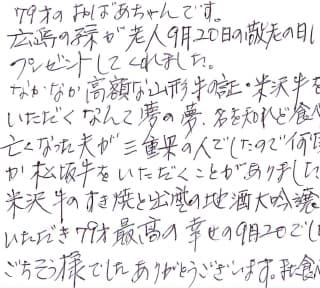 79才のおばあちゃんです。
広島の孫が老人9月20日の敬老の日し
プレゼントしてくれました。
なかなか高額な山形牛の証・米沢牛を
いただくなんて夢の夢、名を知れど食べ
亡くなった夫が三重県の人でしたので何度
か松坂牛をいただくことがありました
米沢牛のすき焼と出羽の地酒大吟醸
いただき79才最高の幸せの9月20でし
ごちそう様でしたありがとうございます。